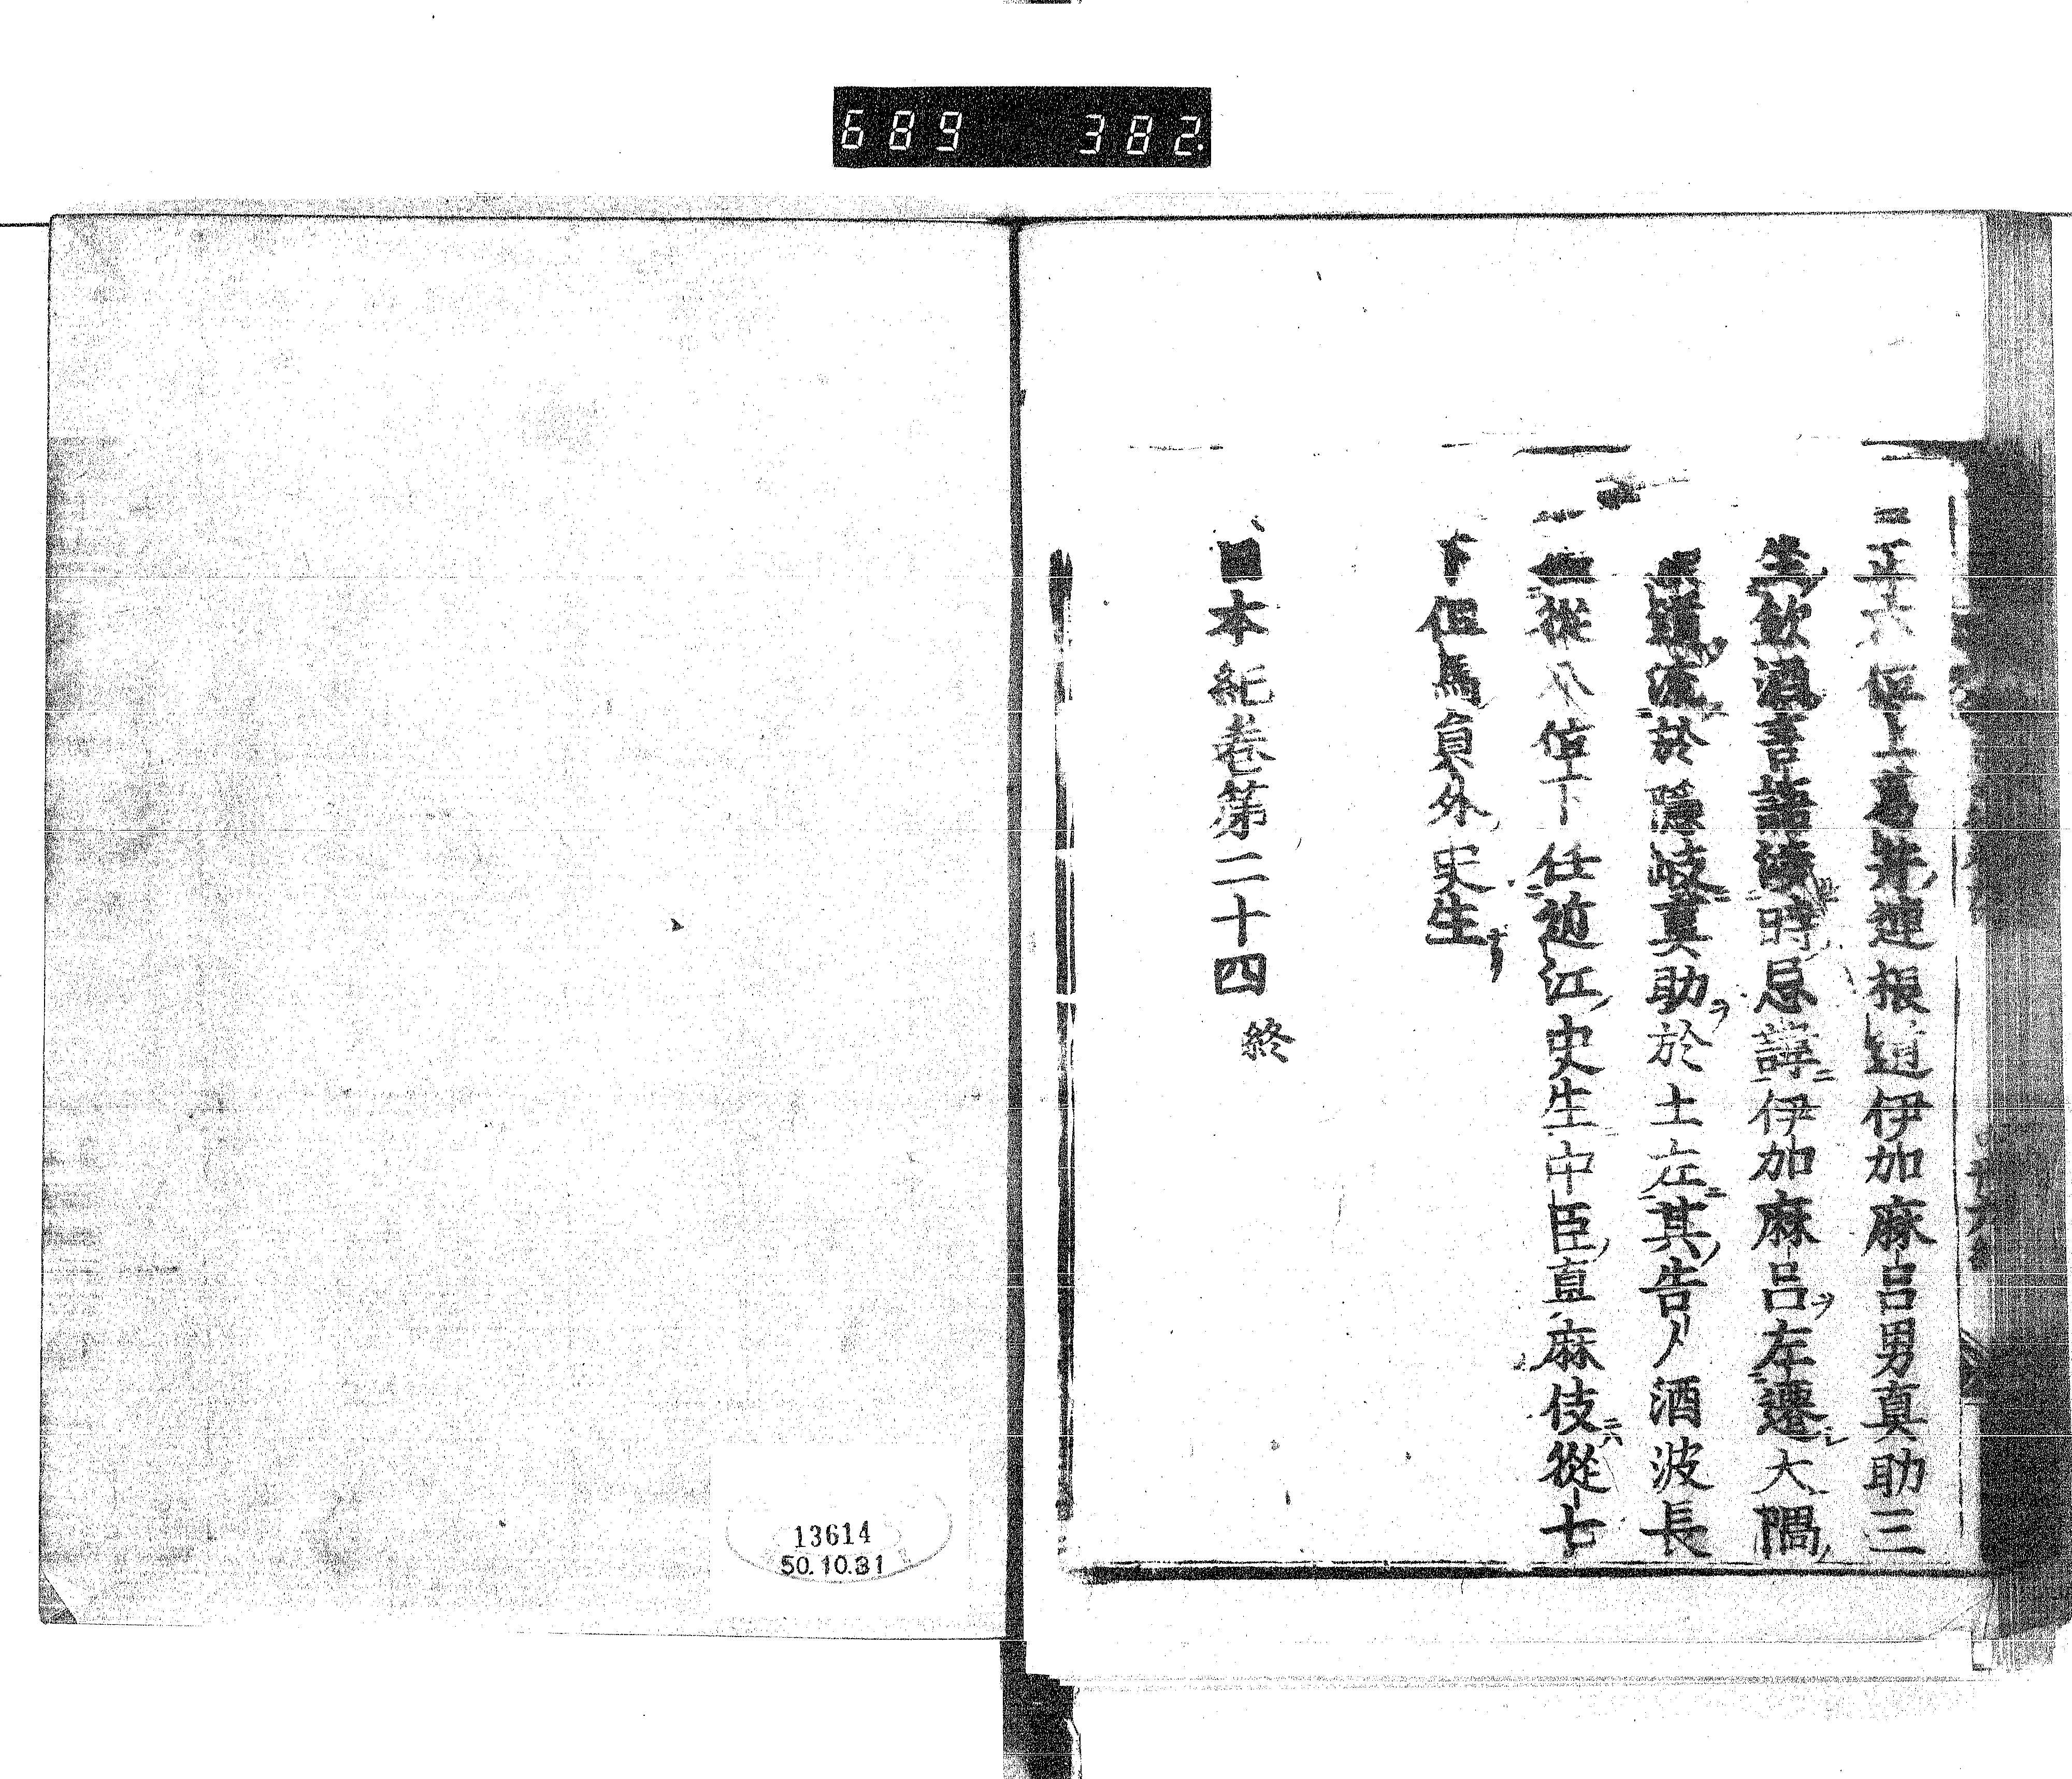 689 382
正六位上葛井連根道伊加麻呂男真助三
生飲酒言語涉時忌諱伊加麻呂左遷大隅
道流於隱岐真助於土左其告人酒波長
從八位下任近江史生中臣真麻伎從七
下但馬員外史生
日本紀卷第二十四 終
13614
50.10.31